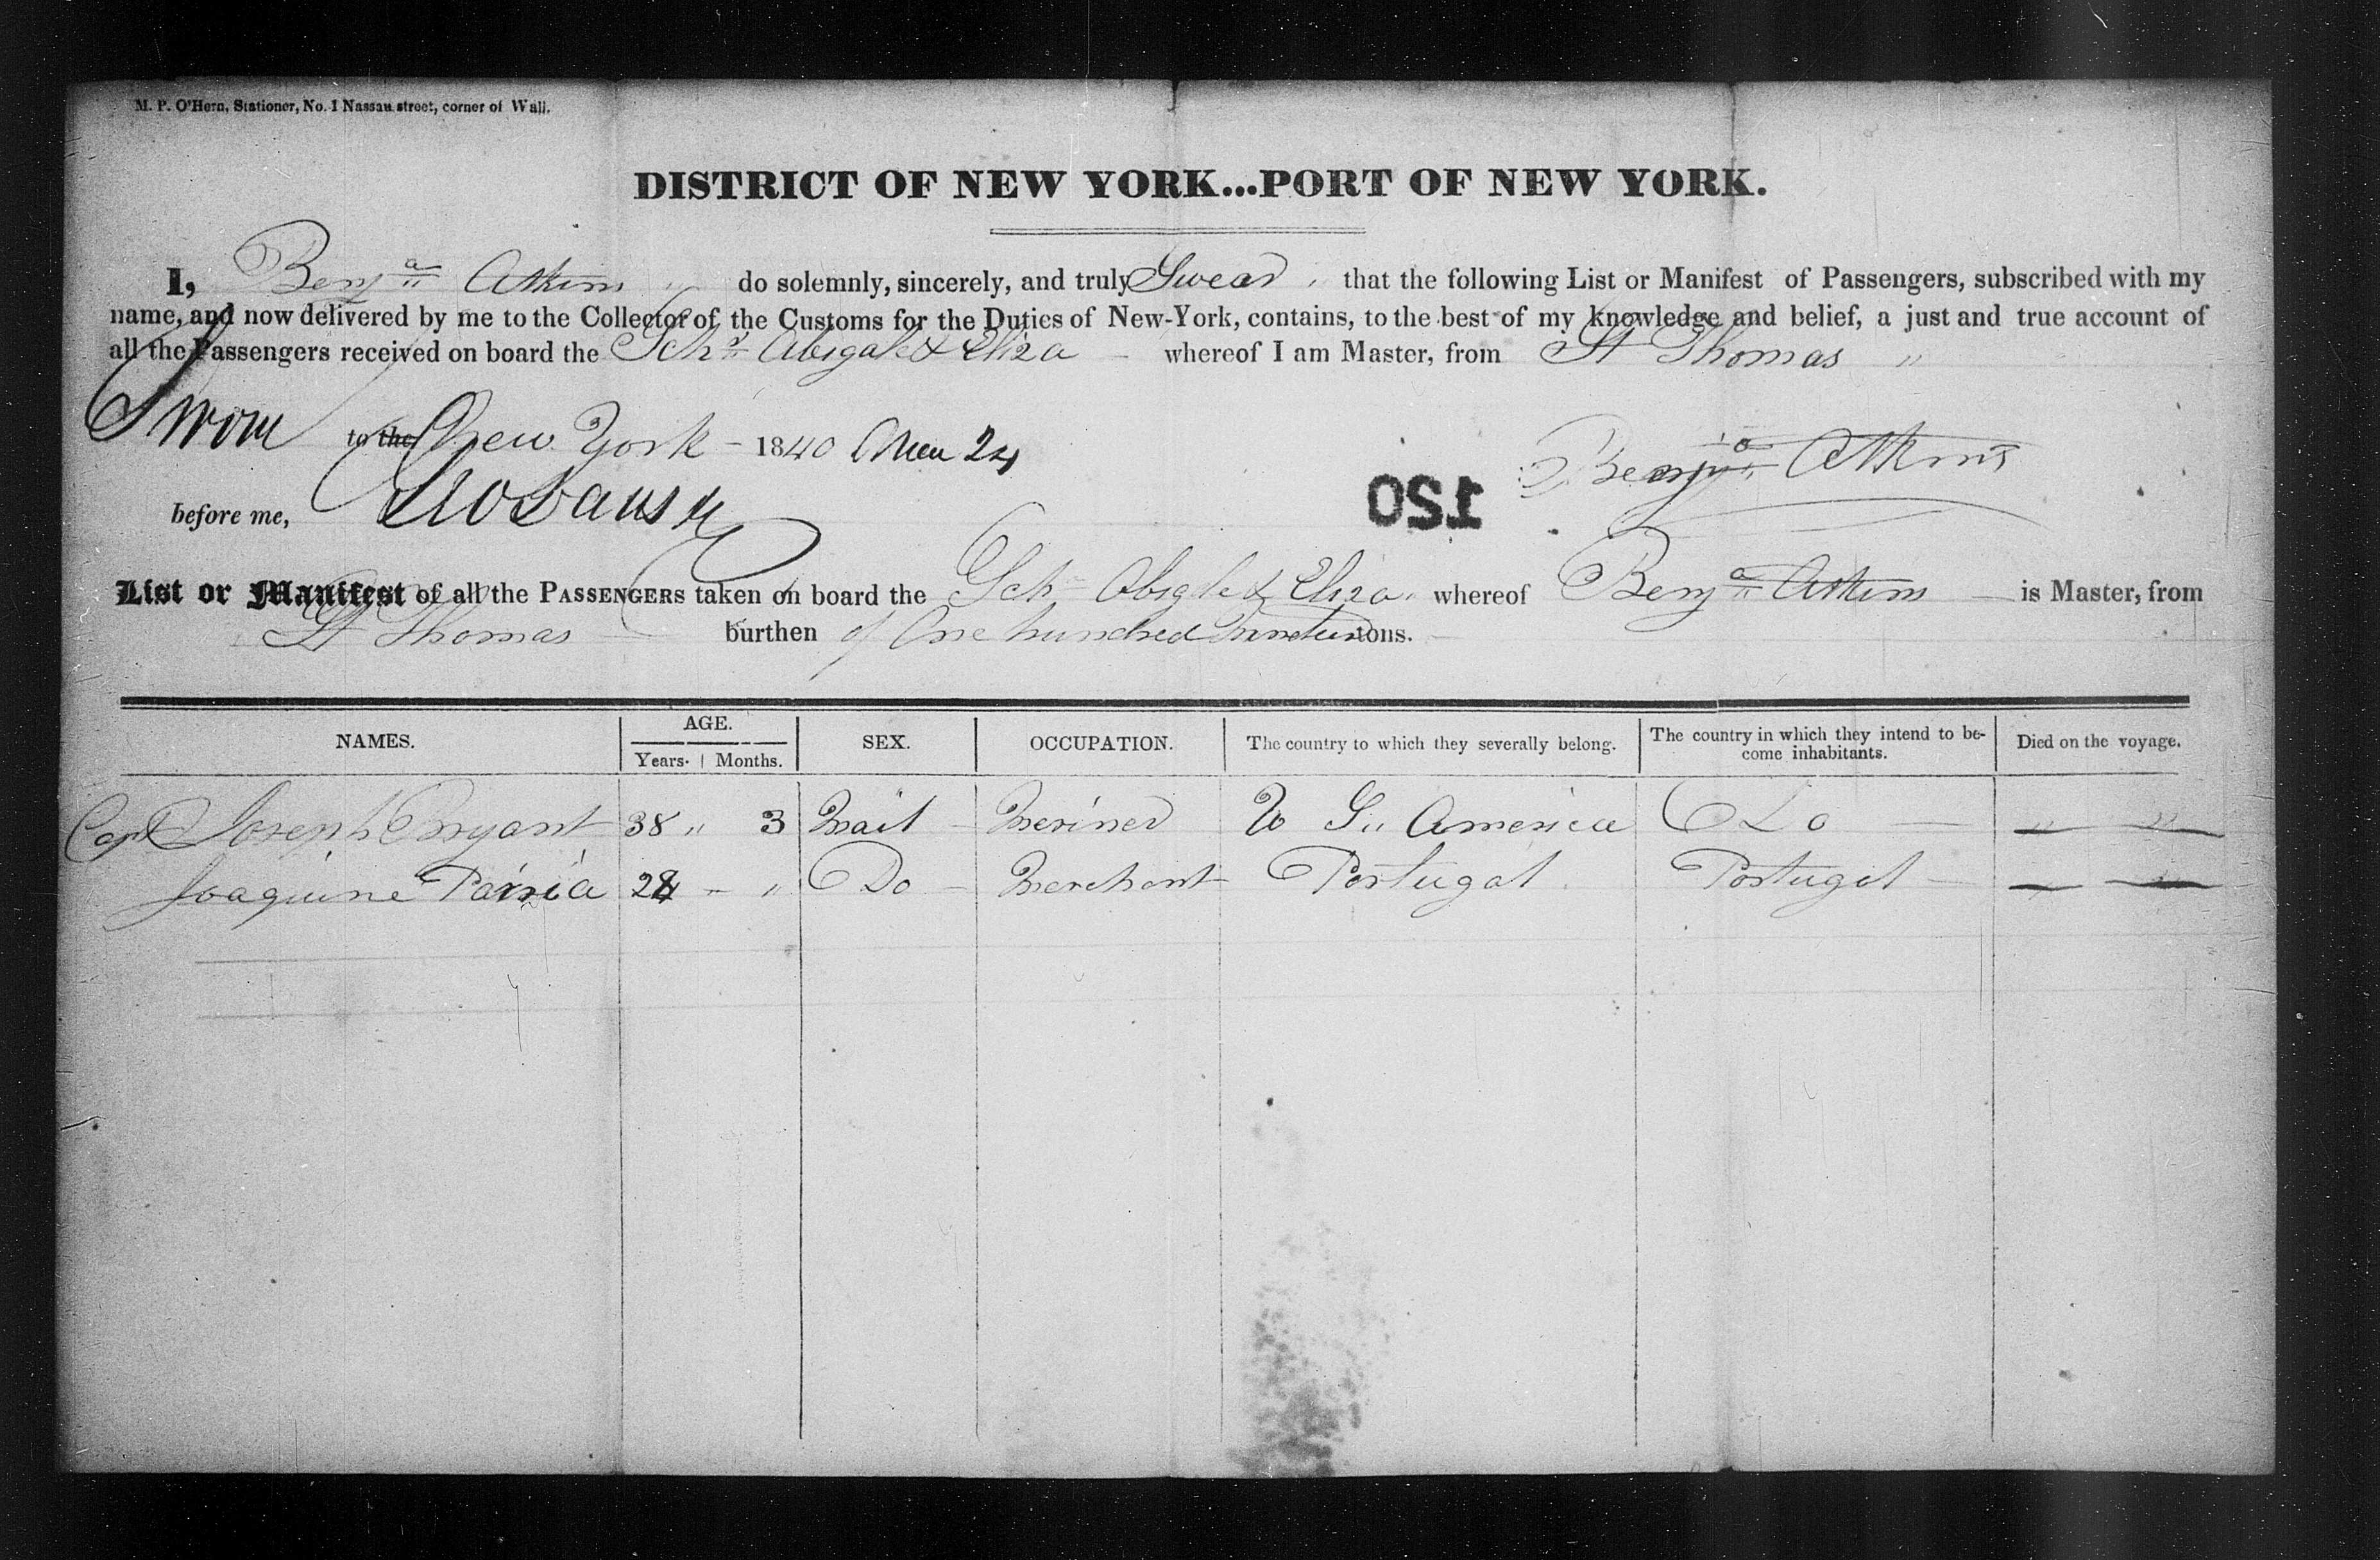 M. P. O'Hern, Stationer, No. 1 Nassau street, corner of Wall.
DISTRICT OF NEW YORK...PORT OF NEW YORK.
I, Benjª Atkins do solemnly, sincerely, and truly Swear that the following List or Manifest of Passengers, subscribed with my
name, and now delivered by me to the Collector of the Customs for the Duties of New-York, contains, to the best of my knowledge and belief, a just and true account of
all the Passengers received on board the Schr Abigale & Eliza whereof I am Master, from St Thomas
Sworn to the New York 1840 24
Benjª Atkins
120
before me,
List or Manifest of all the PASSENGERS taken on board the Sch Abigale & Eliza whereof Benjª Atkins is Master, from
St Thomas burthen of One hundred tons.
NAMES. AGE. SEX. OCCUPATION. The country to which they severally belong. The country in which they intend to become inhabitants. Died on the voyage.
Years. Months.
Capt Joseph Bryant 38 " 3 Mail Meriner U S America Do
Joaquine Do Merchant Portugal Portugal